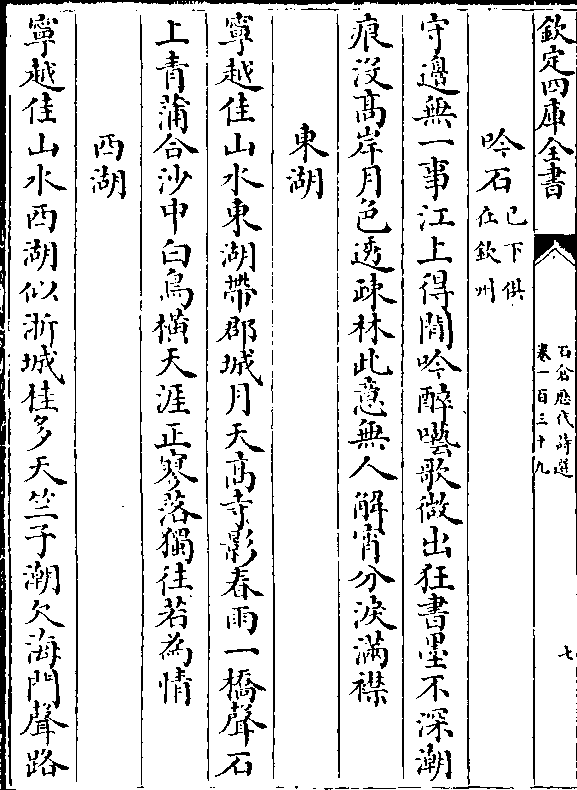 欽定四庫全書
石倉歷代詩選
卷一百三十九
七
吟石
已下俱
在欽州
守邊無一事江上得閒吟醉囈歌微出狂書墨不深潮
痕沒髙岸月色透疎林此意無人解宵分淚滿襟
東湖
寧越佳山水東湖帶郡城月天髙寺影春雨一橋聲石
上青蒲合沙中白鳥橫天涯正寥落獨往若為情
西湖
寧越佳山水西湖似浙城桂多天竺子潮欠海門聲路